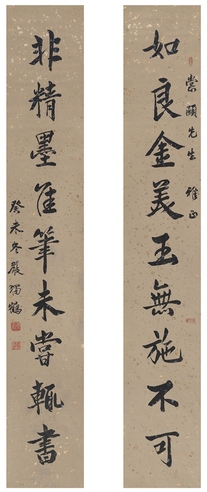 如良金美玉無施不可
崇頤先生 雅正
非精墨佳筆未嘗輒書
癸未冬嚴獨鶴